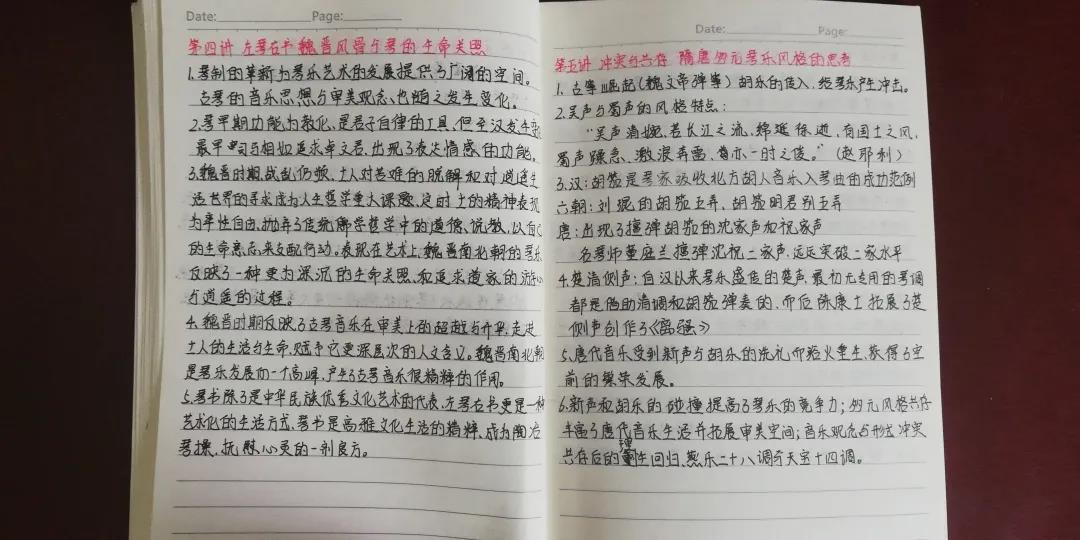 Date: Page:
第四讲 左琴右书 魏晋风骨与琴的生命关照
1.琴制的革新为琴乐艺术的发展提供了广阔的空间。
古琴的音乐思想与审美观念也随之发生变化。
2.琴早期功能为教化,是君子自律的工具,但至汉发生变
最早司马相如追求卓文君,出现了表达情感的功能。
3.魏晋时期,战乱仍频,士人对苦难的脱解和对逍遥生
活世界的寻求成为人生哲学重大课题,这时士的精神表现
为率性自由,抛弃了传统儒学哲学中的道德说教,以自己
的生命意志来支配行动。表现在艺术上,魏晋南北朝的琴乐
反映了一种更为深沉的生命关照,和追求道家的游心
与逍遥的过程。
4.魏晋时期反映了古琴音乐在审美上的超越与升华,走进
士人的生活与生命,赋予它更深层次的人文含义。魏晋南北朝
是琴乐发展的一个高峰,产生了古琴音乐很精粹的作用。
5.琴书除了是中华民族优秀文化艺术的代表,左琴右书更是一种
艺术化的生活方式,琴书是高雅文化生活的精粹,成为陶冶
琴操,抚慰心灵的一剂良方。
Date: Page:
第五讲 冲突与共存 隋唐多元琴乐风格的思考
1. 古筝崛起(魏文帝弹筝)胡乐的传入,给琴乐产生冲击。
2.吴声与蜀声的风格特点:
“吴声清婉,若长江之流,绵延徐逝,有国士之风,
蜀声躁急,激浪奔雷,有亦一时之俊。”(赵耶利)
3.汉:胡笳是琴家吸收北方胡人音乐入琴曲的成功范例
六朝:刘琨的胡笳五弄、胡笳明君别五弄
唐:出现了擅弹胡笳的沈家声和祝家声
名琴师董庭兰擅弹沈祝二家声,远远突破二家水平
4.楚清侧声:自汉以来琴乐盛佳的楚声,最初无专用的琴调
都是借助清调和胡笳弹奏的,而后陈康士拓展了楚
侧声创作了《离骚》
5.唐代音乐受到新声与胡乐的洗礼而浴火重生,获得了空
前的繁荣发展。
6.新声和胡乐的碰撞提高了琴乐的竞争力;多元风格共存
丰富了唐代音乐生活并拓展审美空间;音乐观念与形式冲突
共存后的理性回归,燕乐二十八调与天宝十四调。